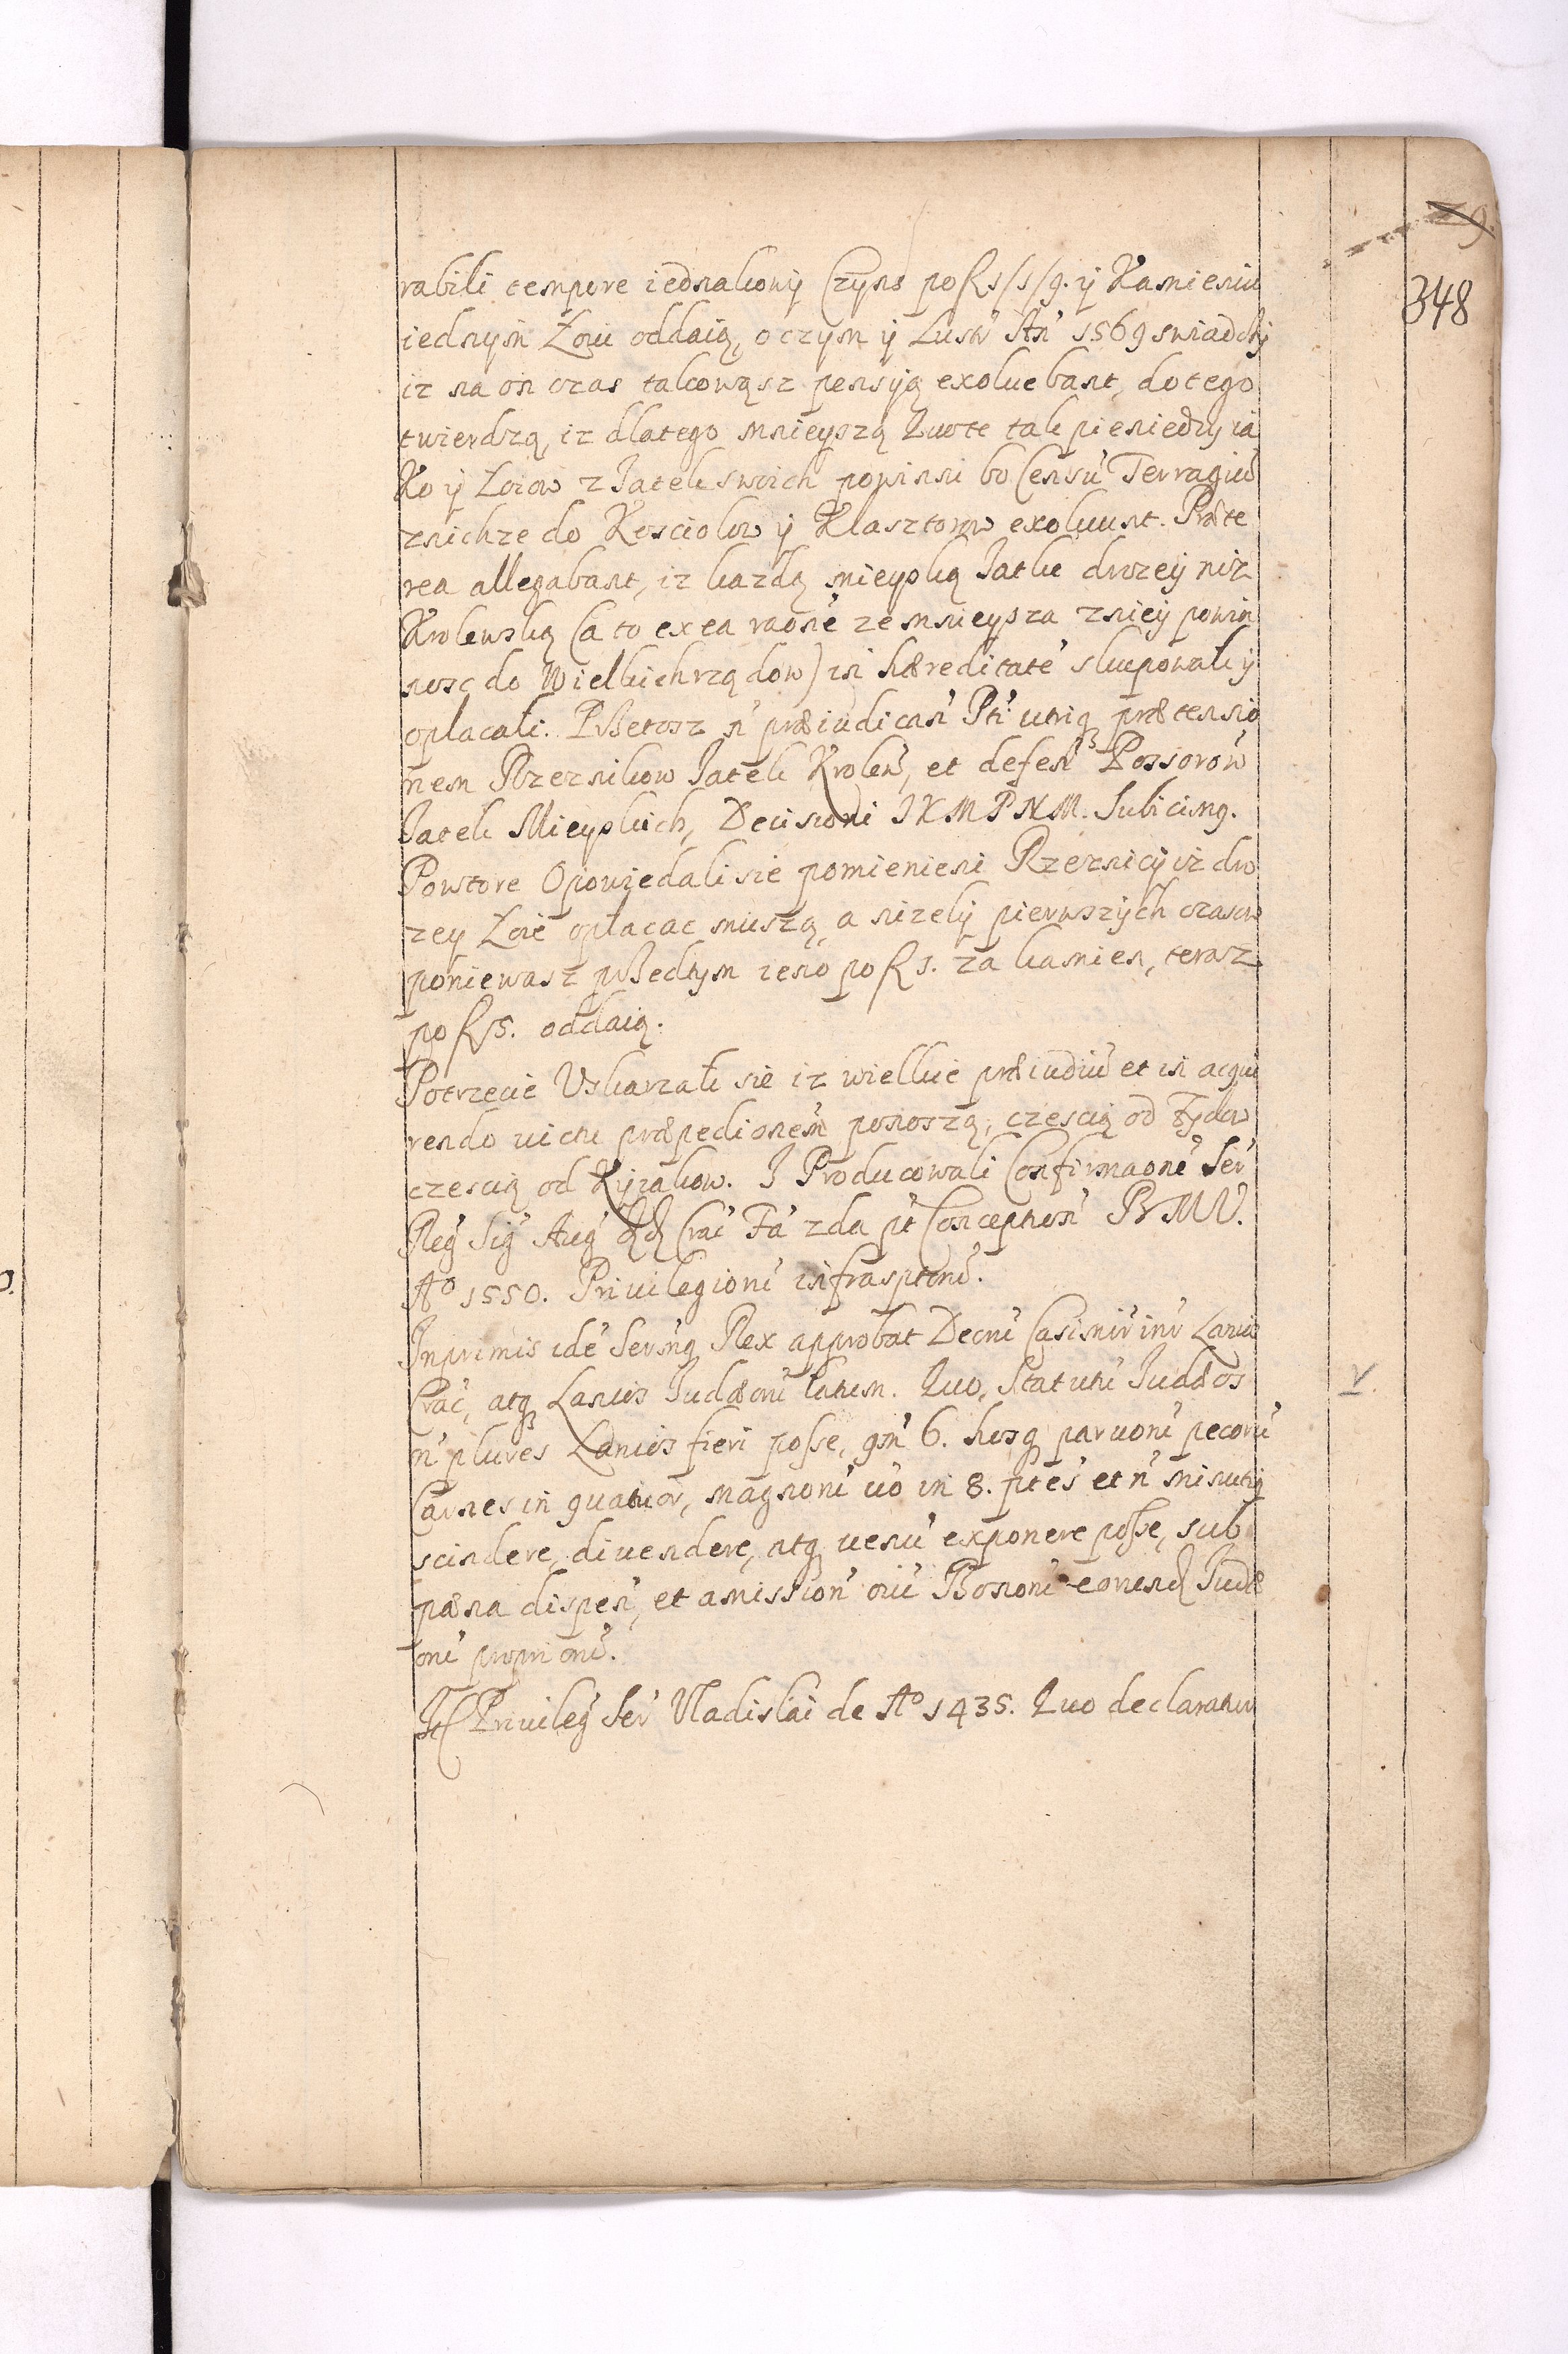 29.
348
rabili tempore iednakowy Czyns po f 1/1/9. y Kamieniu
iednym Łoiu oddaią, o czym y Lustr An 1569 swiadczy
iz na on czas takowąsz pensyą exoluebant, do tego
twierdzą, iz dlatego mnieyszą Quote tak pieniedzy ia
Ko y Łoiow z Jatek swoich powinni bo Censu Terragiu
znichze do Kosciolow y Klasztorow exoluunt. Præte
rea allegabant, iz kazdą mieyską Jatke drozey niz
Krolewską (a to ex ea raone ze mnieysza zniey powin
nosc do Wielkichrządow) in hæreditate skupowali y
oplacali. Przetosz n præiudican Pti utriq prætensio
nem Rzeznikow Jatek Krolew, et defen Possorow
Jatek Mieyskich, Decisioni JKMPNM. Subicimg.
Powtore Opowiedali sie pomienieni Rzeznicy iz dro
zey Łoie oplacac muszą, a nizely pierwszych czasow
poniewasz przedtym ieno po f 1. za kamien, teraz
po f 5. oddaią.
Potrzecie Uskarzali sie iz wielkie præiudiu et in acqui
rendo uictu præpedionem ponoszą, czescią od Żydow
czescią od Kyiakow. J Producowali Confirmaone Ser
Reg Sig Aug Crac Fa 2da pt Conception BVMV.
Ao 1550. Privilegioru infrasptoru.
Inprimis ide Serimg Rex approbat Decru Casimir intr Lanios
Crac, atq Lanios Judæoru latum. Quo, Statutu Judæos
n plures Lanios fieri posse, qm 6. hosq paruoru pecoru
Carnes in quatuor, magnoru uo in 8. ptes et n minutiq
scindere, diuendere, atq uenu exponere posse, sub
pæna dispen, et amission oiu Bonoru eorund Judæ
oru proprioru.
It Priuileg Ser Vladislai de Ao 1435. Quo declaratur
V.